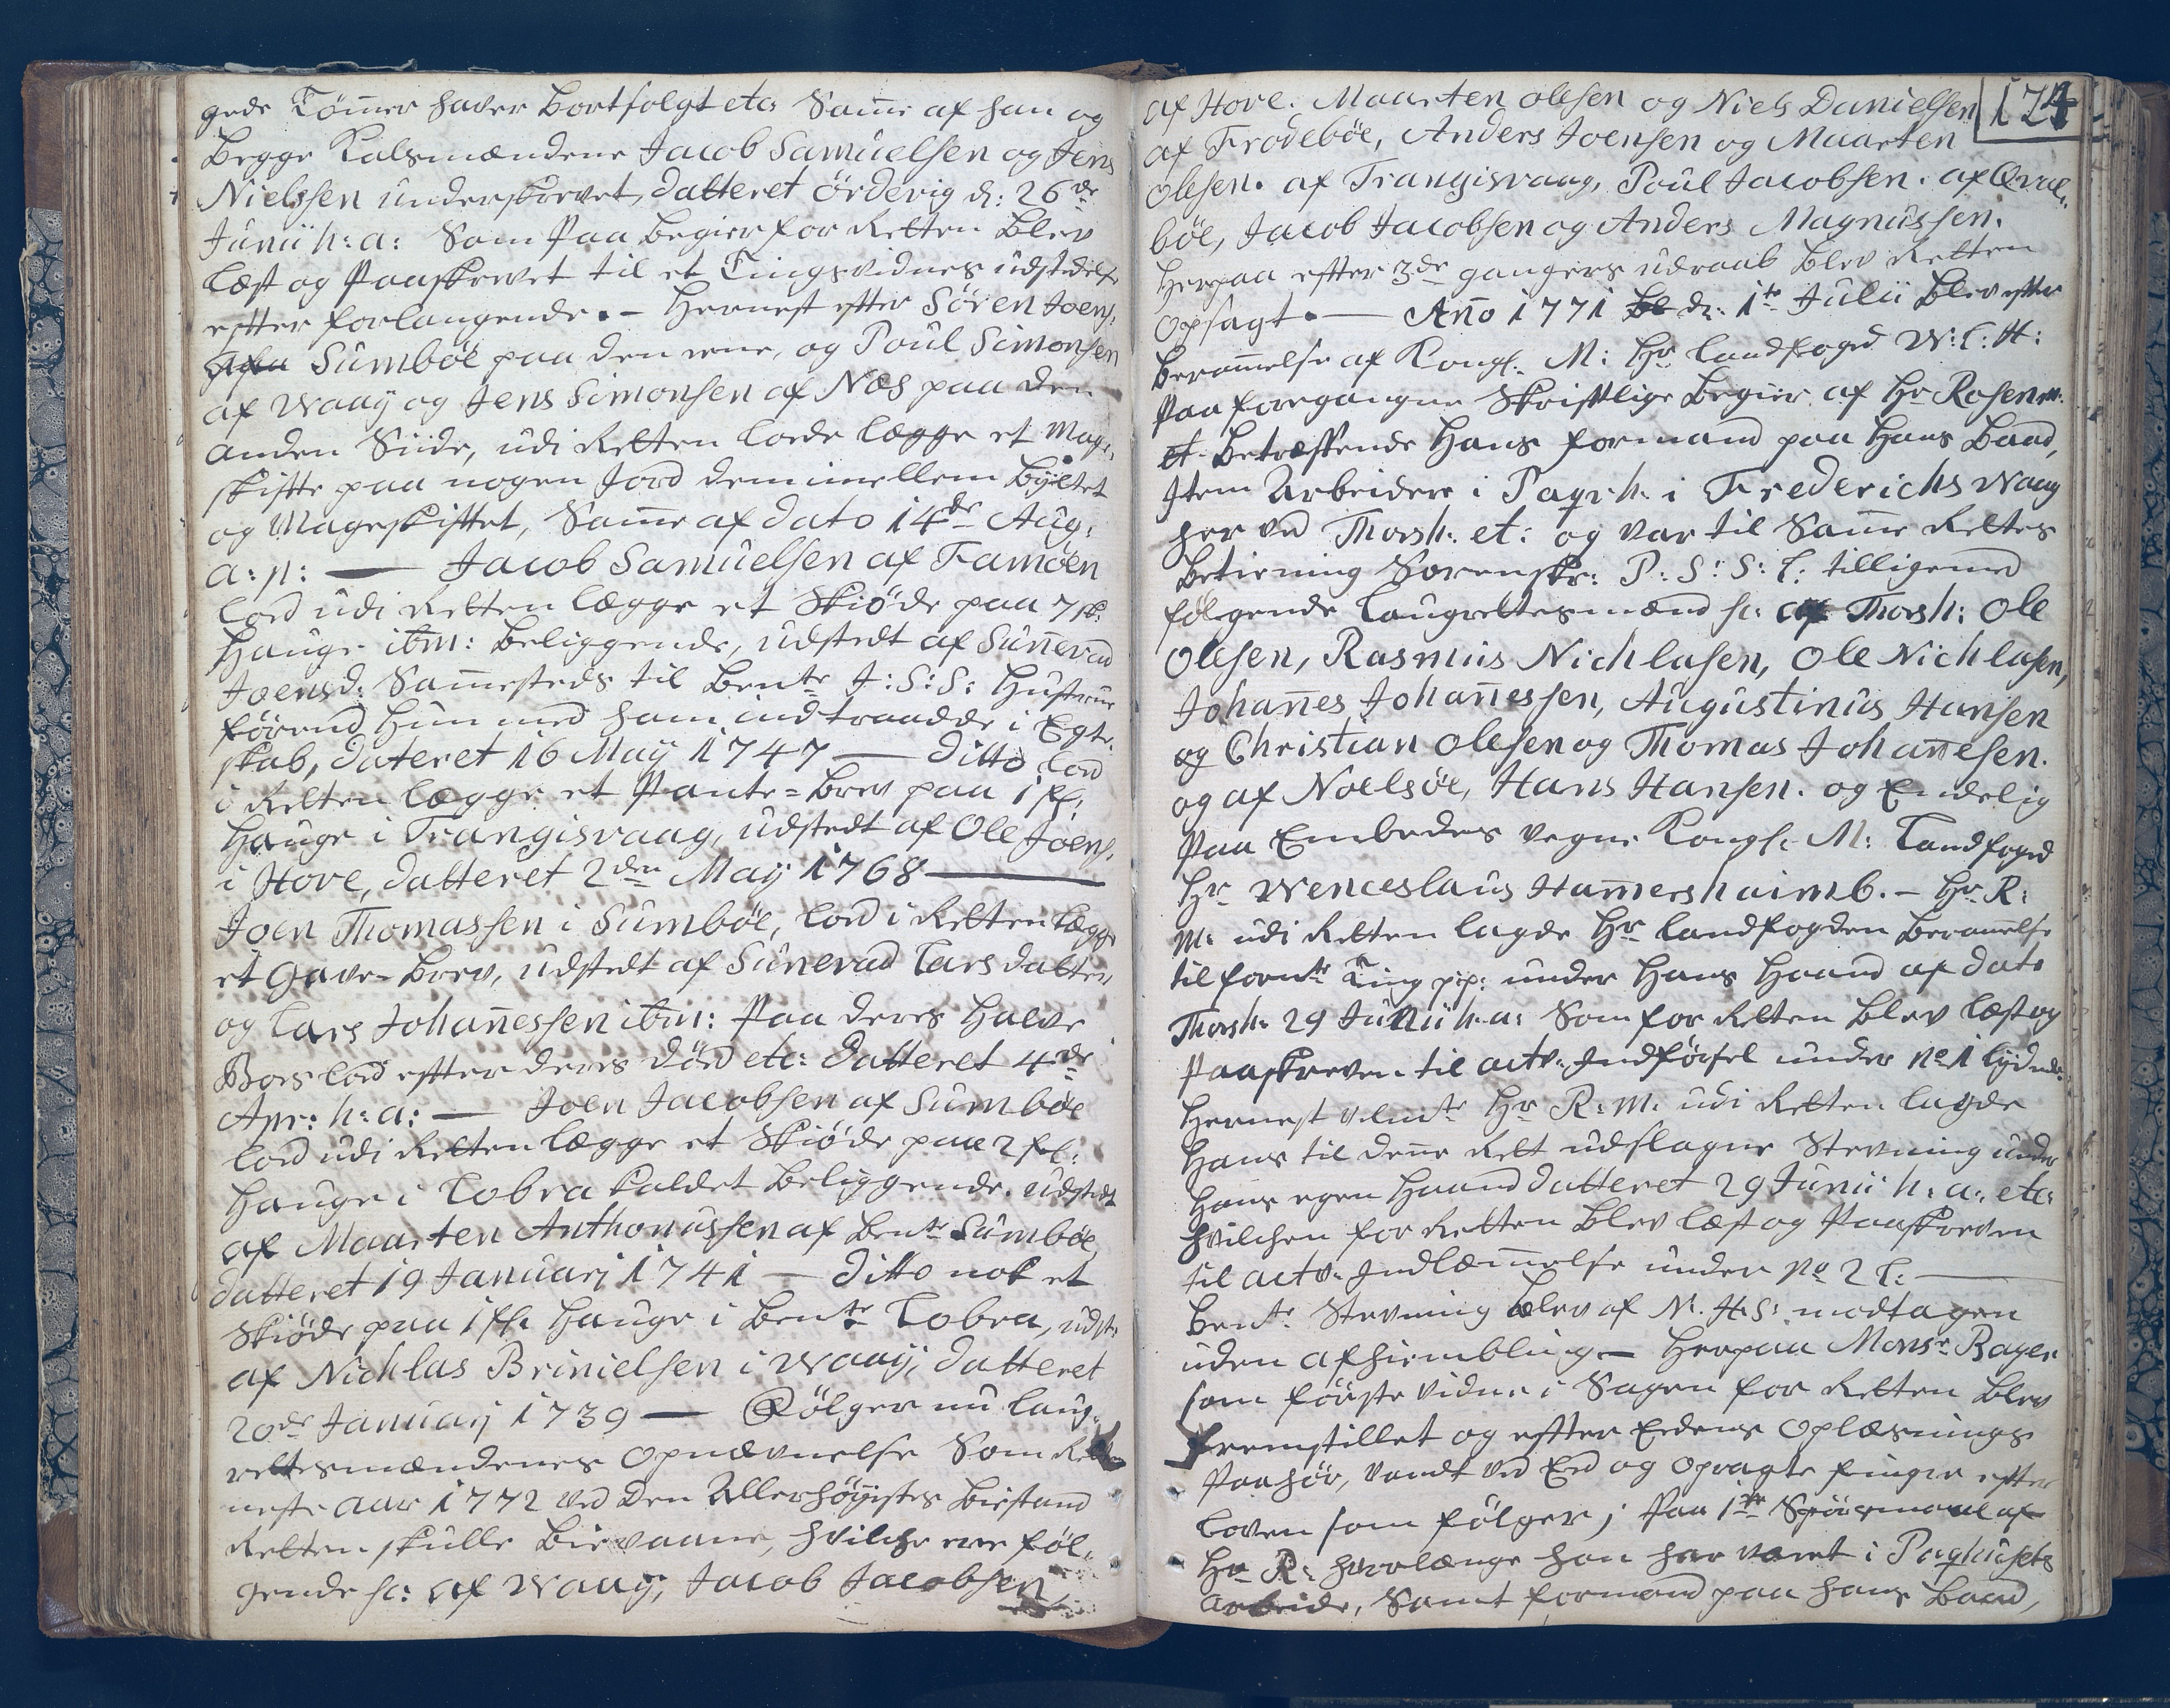 gede Tømer haver bortsolgt etc: Same af han og
Begge Kalsmændene Jacob Samuelsen og Jens
Nielssen underskrevet, datteret Ørdevig d: 26de
Junii h: a: Som paa Begier for Retten blev
læst og Paaskrevet til et Tingsvidnes udstedelse
efter forlangende. — Hernest efter Sören Joens:
Sumböe paa den eene, og Poul Simonsen
af Waaÿ og Jens Simonsen af Næs paa den
anden Siide, udi Retten lode lægge et Mage-
skifte paa nogen Jord dem imellem Bÿttet
og Mageskiftet, Same af dato 14de Aug:
a: p: — Jacob Samuelsen af Famöen
lod udi Retten lægge et Skiöde paa 7 sk:
Hauge ibm: beliggende, udstedt af Sunevad
Joensd: Samesteds til Bente J: S: S: Hustrue
förend hun med ham indtraadde i Egte-
skab, dateret 16 Maÿ 1747 — Ditto lod
i Retten lægge et Pante-Brev paa 1 sk:
Hauge i Trangisvaag, udstedt af Ole Joens:
i Hove, datteret 2den Maÿ 1768 —
Joen Thomassen i Sumböe, lod i Retten lægge
et Gave-Brev, udstedt af Sunevad Larsdatter
og Lars Johañessen ibm: Paa deres Halve
Boeslod efter deres Död etc: Datteret 4de
Apr: h: a: — Joen Jacobsen af Sumböe
lod udi Retten lægge et Skiöde paa 2 sk:
Hauge i Lobra kaldet beliggende. udstedt
af Maarten Anthoniussen af Bente Sumböe,
datteret 19 Januarj 1741 — Ditto nok et
Skiöde paa 1 sk: Hauge i Bente Lobra, udst:
af Nichlas Brinielsen i Waaÿ, datteret
20de Januarj 1739 — Fölger nu Laug-
rettesmændenes Opnævnelse Som Retten
neste Aar 1772 ved Den Allerhöÿestes Biestand
Retten skulle Bievaane, hvilche ere föl-
gende sc: af Waaÿ, Jacob Jacobsen
124
af Hove. Maarten Olesen og Niels Danielsen
af Frodeböe, Anders Joensen og Maarten
Olesen. af Trangisvaag, Poul Jacobsen. af Qval-
böe, Jacob Jacobsen og Anders Magnussen.
Herpaa efter 3de gangers udraab blev Retten
Opsagt. — Año 1771 d: 1te Julii blev efter
Beramelse af Kongl: M: Hr Landfoged W: C: H:
Paa foregangne Skriftlige Begier af Hr Rosenm:
et Betræffende Hans formand paa Hans Baad,
Item Arbeidere i Paqh: i Frederichs Waag
her ved Thorsh: et: og var til Same Rettes
Betiening Sorenskr: P: S: S: L: tilligemed
fölgende Laugrettesmænd sc: af Thorsh: Ole
Olesen, Rasmus Nichlasen, Ole Nichlasen,
Johañes Johañessen, Augustinus Hansen
og Christian Olesen og Thomas Johañesen.
og af Noelsöe, Hans Hansen. og Endelig
Paa Embedes vegne Kongl: M: Landfoged
Hr Wenceslaus Hamershaimb. — Hr R:
M: udi Retten lagde Hr Landfogden Beramelse
til fornte Ting p:p: under Hans Haand af dato
Thorsh: 29 Junii h: a: Som for Retten blev læst og
Paaskreven til actv: Indförsel under No 1 lÿdende
Hernest velmte Hr R: M: udi Retten lagde
Hans til dene Rett udslagne Stevning under
Hans egen Haand datteret 29 Junii h: a: etc:
Hvilchen for Retten blev læst og Paaskreven
til actv: Indlæmelse under No 2 L: —
Bente Stevning blev af N: H: S: modtagen
uden afhiembling — Herpaa Monsr Bager
som förste vidne i Sagen for Retten blev
fremstillet og efter Edens Oplæsnings
Paahör, vandt ved Eed og opragte fingre efter
Loven som fölger; Paa 1te Spörsmaal af
Hr R: hvorlænge han har været i Paqhusets
Arbeide, Samt formand paa hans Baad,